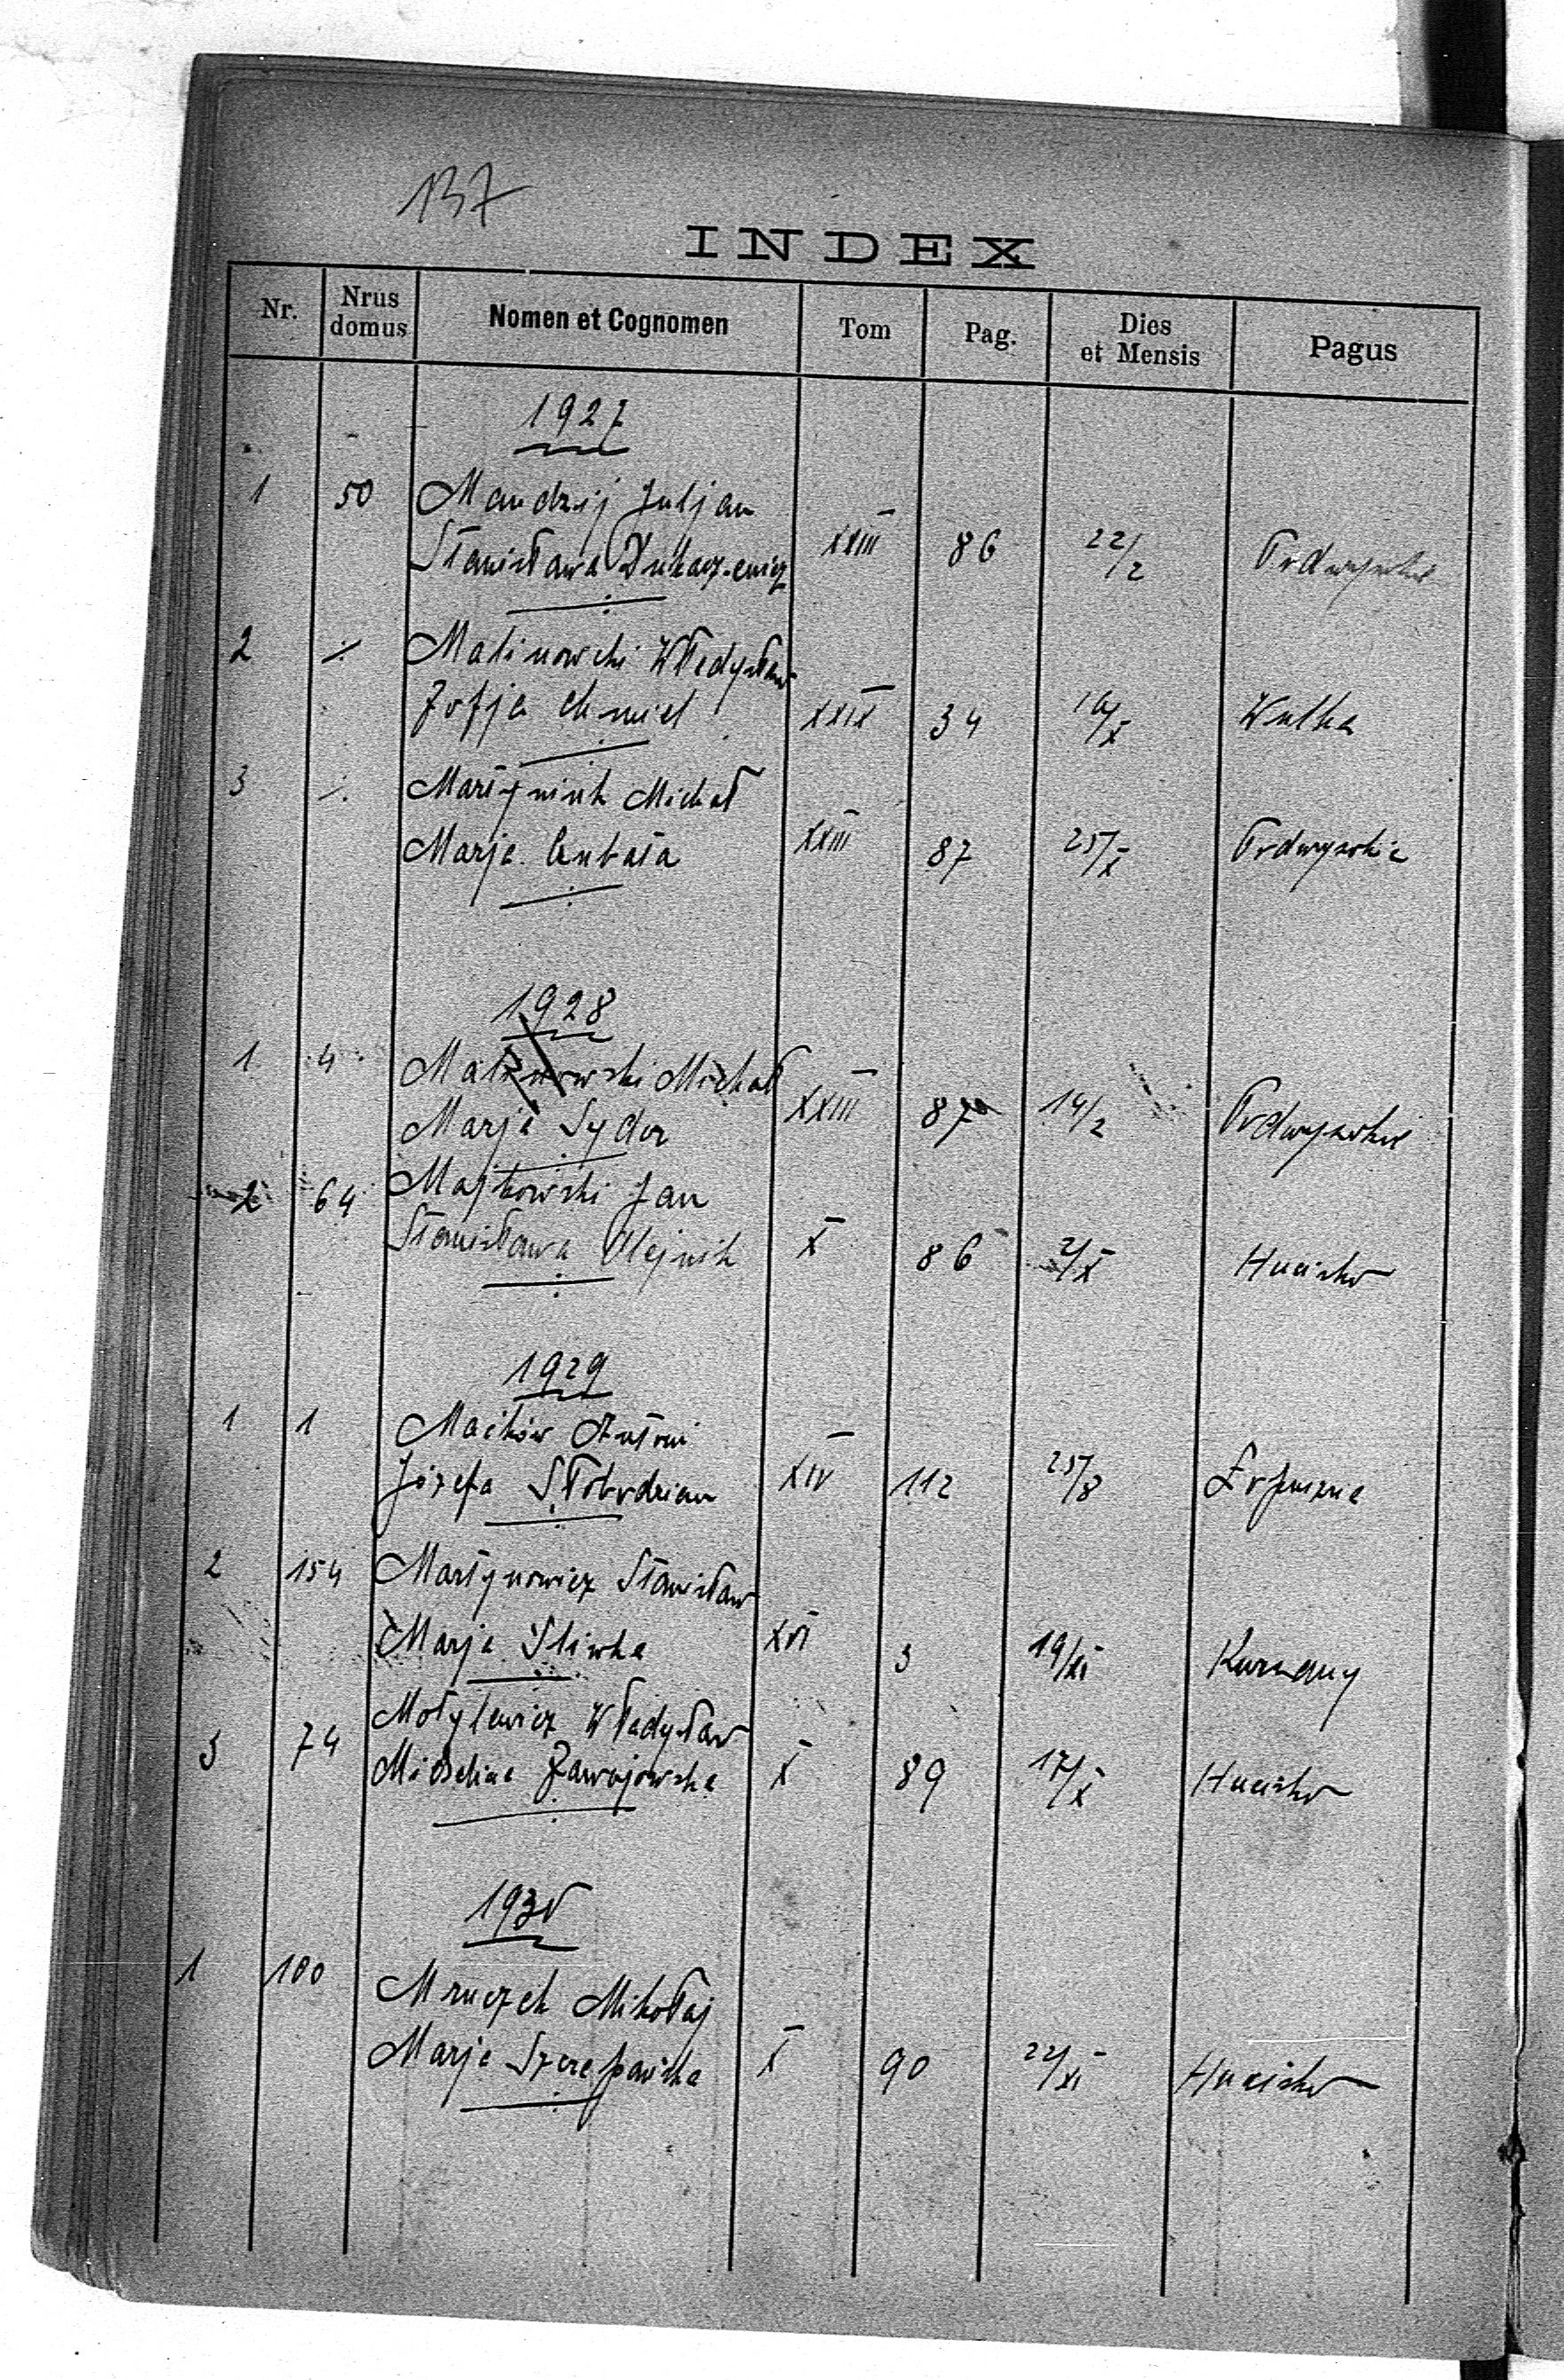 137
INDEX
Nr. Nrus domus Nomen et Cognomen Tom Pag. Dies et Mensis Pagus
1927
1 50 Mandzij Juljan
Stanisława XXIII 86 22/2 Podwysokie
2 ·/· Malinowski Władysław
Zofja Chmiel XXIX 34 /X Wulka
3 ·/· Martyniuk Michał
Marja XXIII 87 25/X Podwysokie
1928
1 4 Malinowski Michał
Marja Sydor XXIII 87 14/2 Podwysokie
2 64 Majkowski Jan
Stanisława Olejnik X 86 2/X Hucisko
1929
1 1 Maćków Antoni
Józefa Słobodzian XIV 112 25/8 Łopuszna
2 154 Martynowicz Stanisław
Marja Śliwka XVI 3 19/XI Kurzany
3 74 Motylewicz Władysław
Michalina Zawojowska X 89 17/X Hucisko
1930
1 100 Mruczek Mikołaj
Marja Szczepańska X 90 22/XI Hucisko